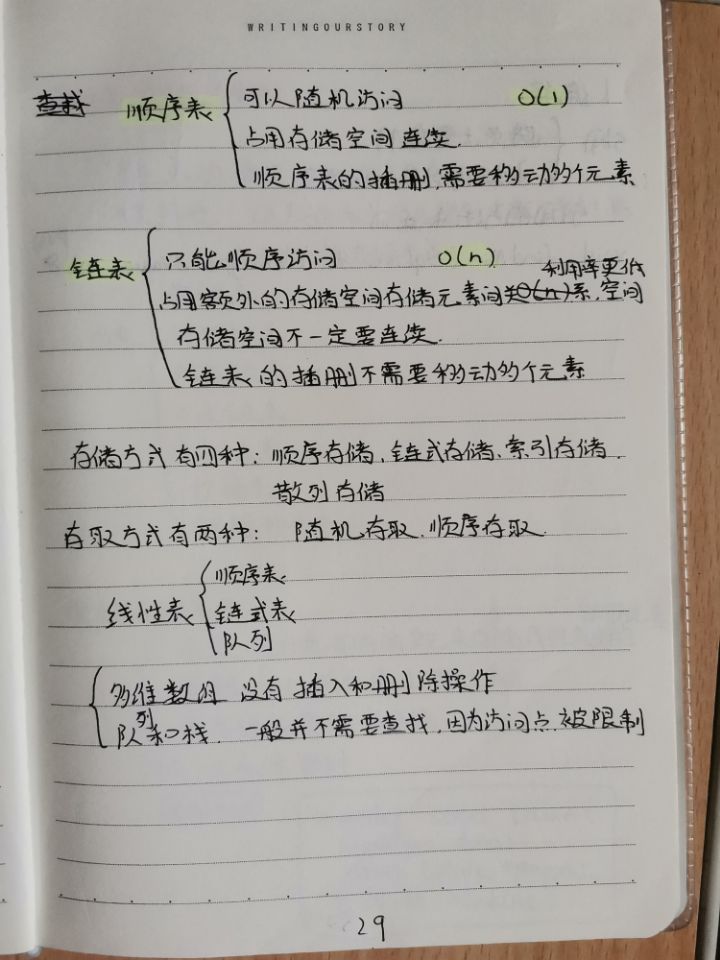 WRITINGOURSTORY
查找 顺序表 可以随机访问 O(1)
占用存储空间连续.
顺序表的插删,需要移动多个元素
链表 只能顺序访问 O(n)
利用率更低
占用额外的存储空间存储元素间关系,空间
存储空间不一定要连续.
链表的插删不需要移动多个元素
存储方式有四种: 顺序存储、链式存储、索引存储、
散列存储
存取方式有两种: 随机存取、顺序存取
线性表 顺序表
链式表
队列
多维数组 没有插入和删除操作
队列和栈. 一般并不需要查找,因为访问点被限制
29